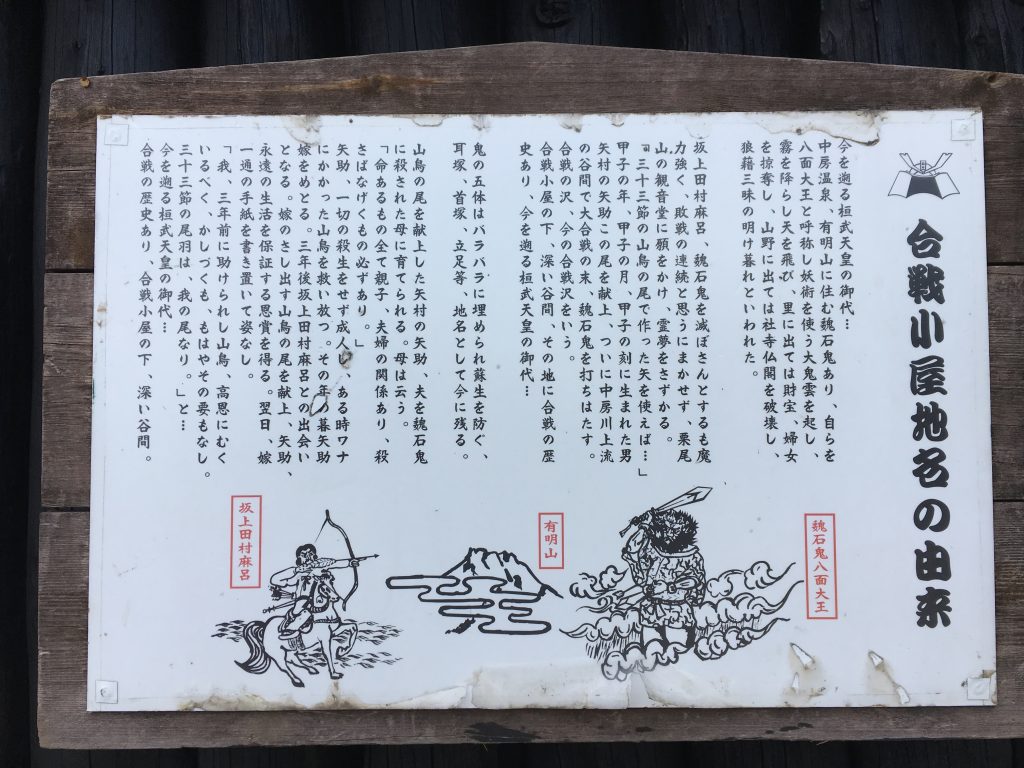 合戦小屋地名の由来
今を遡る桓武天皇の御代…
中房温泉、有明山に住む魏石鬼あり、自らを
八面大王と呼称し妖術を使う大鬼雲を起し、
霧を降らし天を飛び、里に出ては財宝、婦女
を掠奪し、山野に出ては社寺仏閣を破壊し、
狼藉三昧の明け暮れといわれた。
坂上田村麻呂、魏石鬼を滅ぼさんとするも魔
力強く、敗戦の連続と思うにまかせず、栗尾
山の観音堂に願をかけ、霊夢をさずかる。
『三十三節の山鳥の尾で作った矢を使えば…』
甲子の年、甲子の月、甲子の刻に生まれた男
矢村の矢助この尾を献上、ついに中房川上流
の谷間で大合戦の末、魏石鬼を打ちはたす。
合戦の沢、今の合戦沢をいう。
合戦小屋の下、深い谷間、その地に合戦の歴
史あり、今を遡る桓武天皇の御代…
鬼の五体はバラバラに埋められ蘇生を防ぐ、
耳塚、首塚、立足等、地名として今に残る。
山鳥の尾を献上した矢村の矢助、夫を魏石鬼
に殺された母に育てられる。母は云う。
「命あるもの全て親子、夫婦の関係あり、殺
さばなげくもの必ずあり。」
矢助、一切の殺生をせず成人し、ある時ワナ
にかかった山鳥を救い放つ。その年の暮矢助
嫁をめとる。三年後坂上田村麻呂との出会い
となる。嫁のさし出す山鳥の尾を献上、矢助、
永遠の生活を保証する恩賞を得る。翌日、嫁
一通の手紙を書き置いて姿なし。
「我、三年前に助けられし山鳥、高恩にむく
いるべく、かしづくも、もはやその要もなし。
三十三節の尾羽は、我の尾なり。」と…
今を遡る桓武天皇の御代…
合戦の歴史あり、合戦小屋の下、深い谷間。
魏石鬼八面大王
有明山
坂上田村麻呂